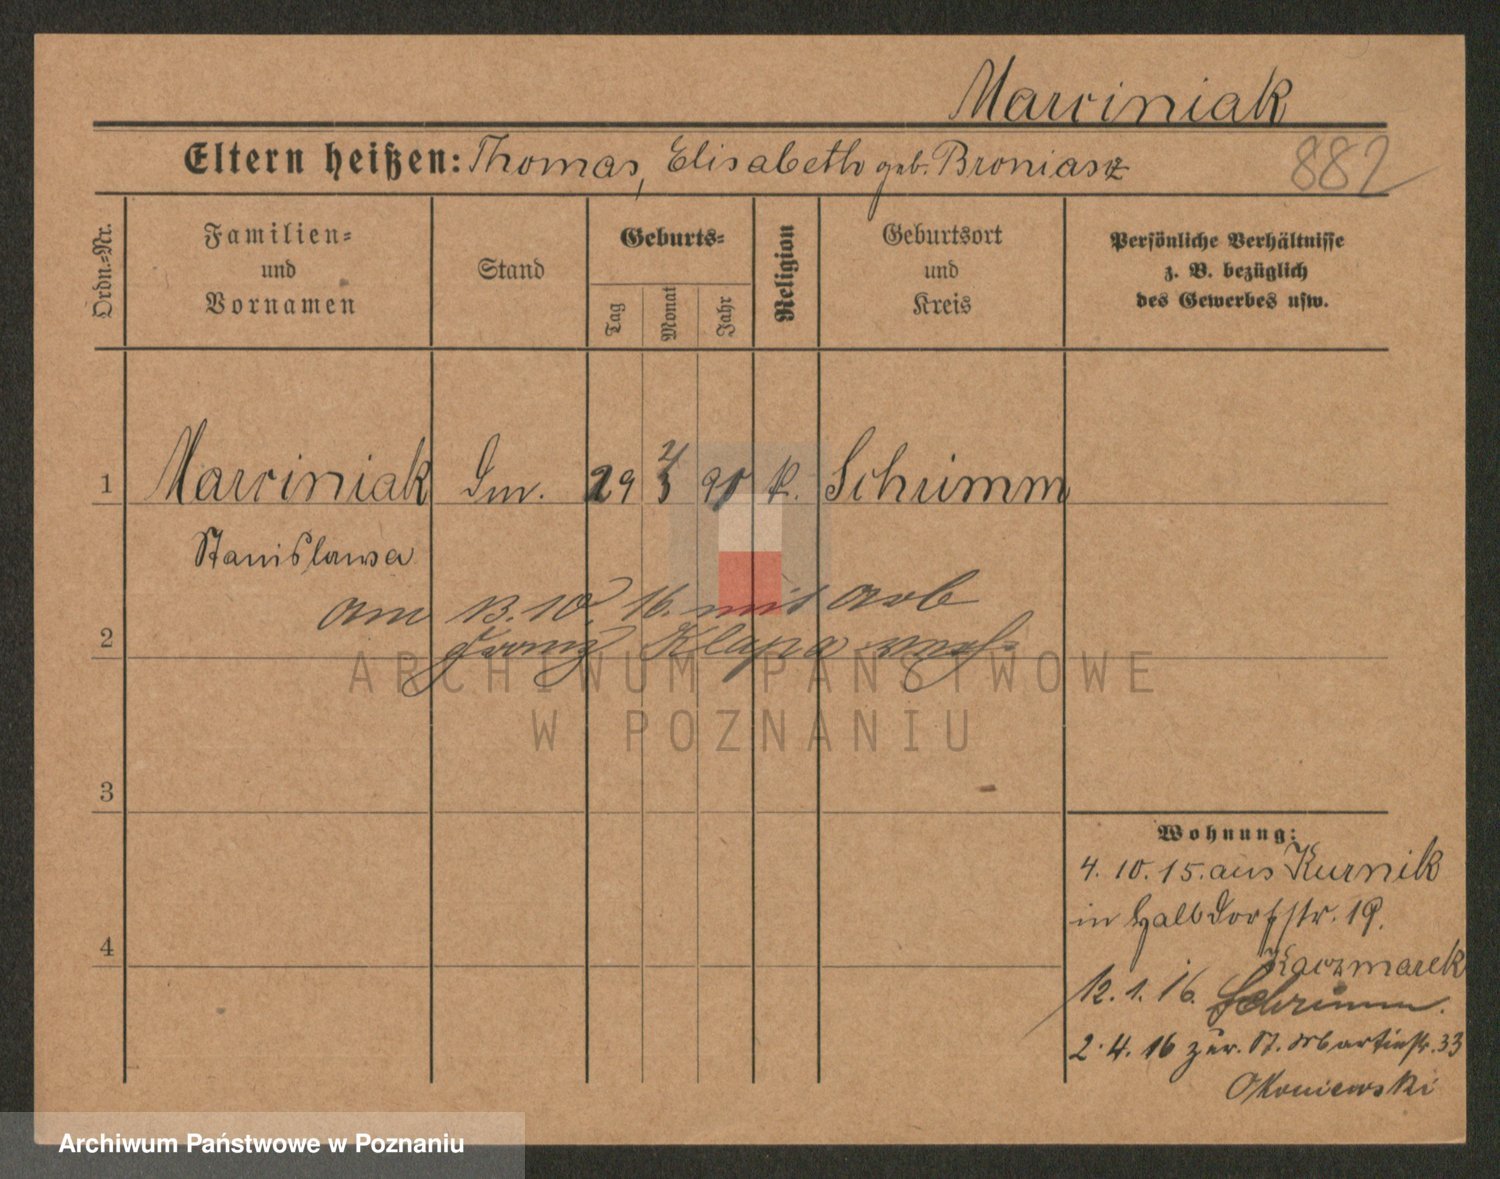 Marciniak
Eltern heißen: Thomas, Elisabeth geb. Broniasz
882
Ordn.-Nr.
Familien-
und
Vornamen
Stand
Geburts-
Tag
Monat
Jahr
Religion
Geburtsort
und
Kreis
Persönliche Verhältnisse
z. B. bezüglich
des Gewerbes usw.
1 Marciniak 29 90 k. Schrimm
Stanislawa
am 13.10.16. mit Arb
2 Franz Klapa verh.
3
4
Wohnung:
4. 10. 15. aus Kurnik
in Halbdorfstr. 19.
Kaczmarek
12. 1. 16. Schrimm.
2. 4. 16 zur. St. Martinstr. 33
Okoniewski
ARCHIWUM PAŃSTWOWE
W POZNANIU
Archiwum Państwowe w Poznaniu